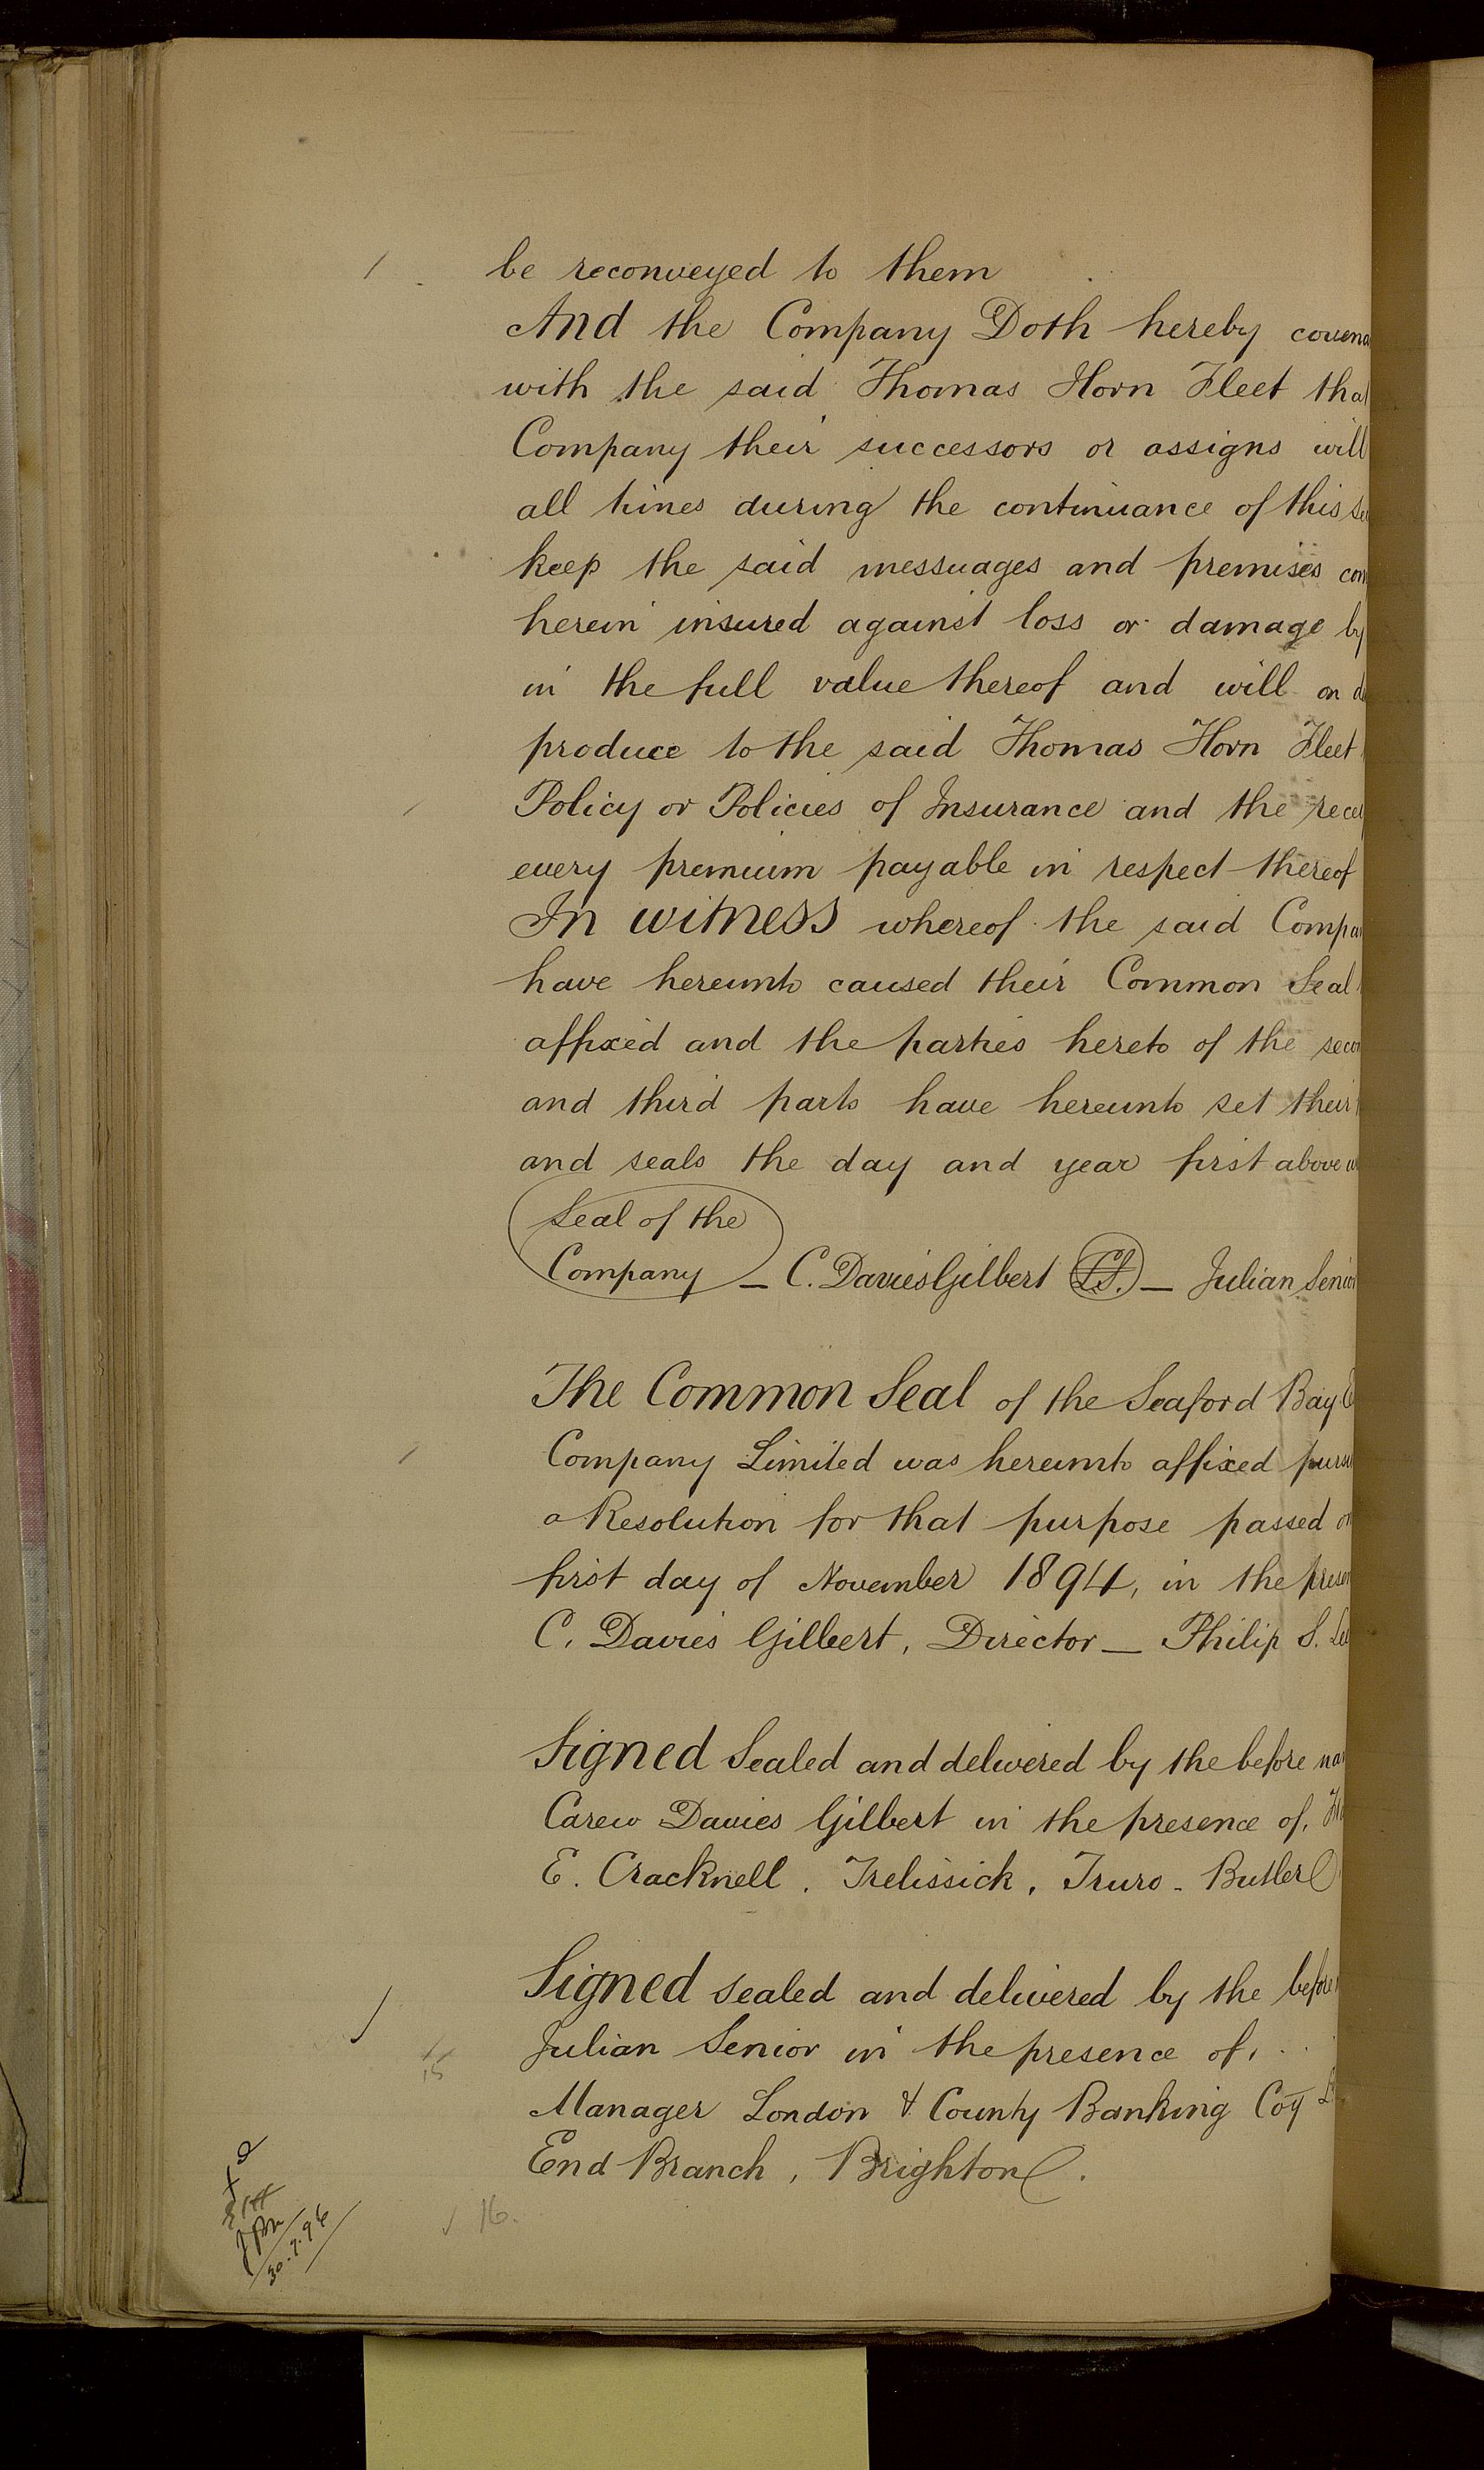 be reconveyed to them
And the Company Doth hereby covena
with the said Thomas Horn Fleet tha
Company their successors or assigns will
all times during the continuance of this se
keep the said messuages and premises con
herein insured against loss or damage by
in the full value thereof and will on d
produce to the said Thomas Horn Fleet
Policy or Policies of Insurance and the rece
every premium payable in respect thereof
In witness whereof the said Compa
have hereunto caused their Common Seal
affixed and the parties hereto of the seco
and third parts have hereunto set their
and seals the day and year first above w
Seal of the
Company — C. Davies Gilbert L.S. — Julian Senior
The Common Seal of the Seaford Bay E
Company Limited was hereunto affixed pursu
a Resolution for that purpose passed on
first day of November 1894, in the presen
C. Davies Gilbert, Director — Philip S. Le
Signed Sealed and delivered by the before na
Carew Davies Gilbert in the presence of,
E. Cracknell. Trelissick, Truro - Butler
Signed sealed and delivered by the before
Julian Senior in the presence of, . .
Manager London & County Banking Coy
End Branch, Brighton.
15
16.
30.7.96